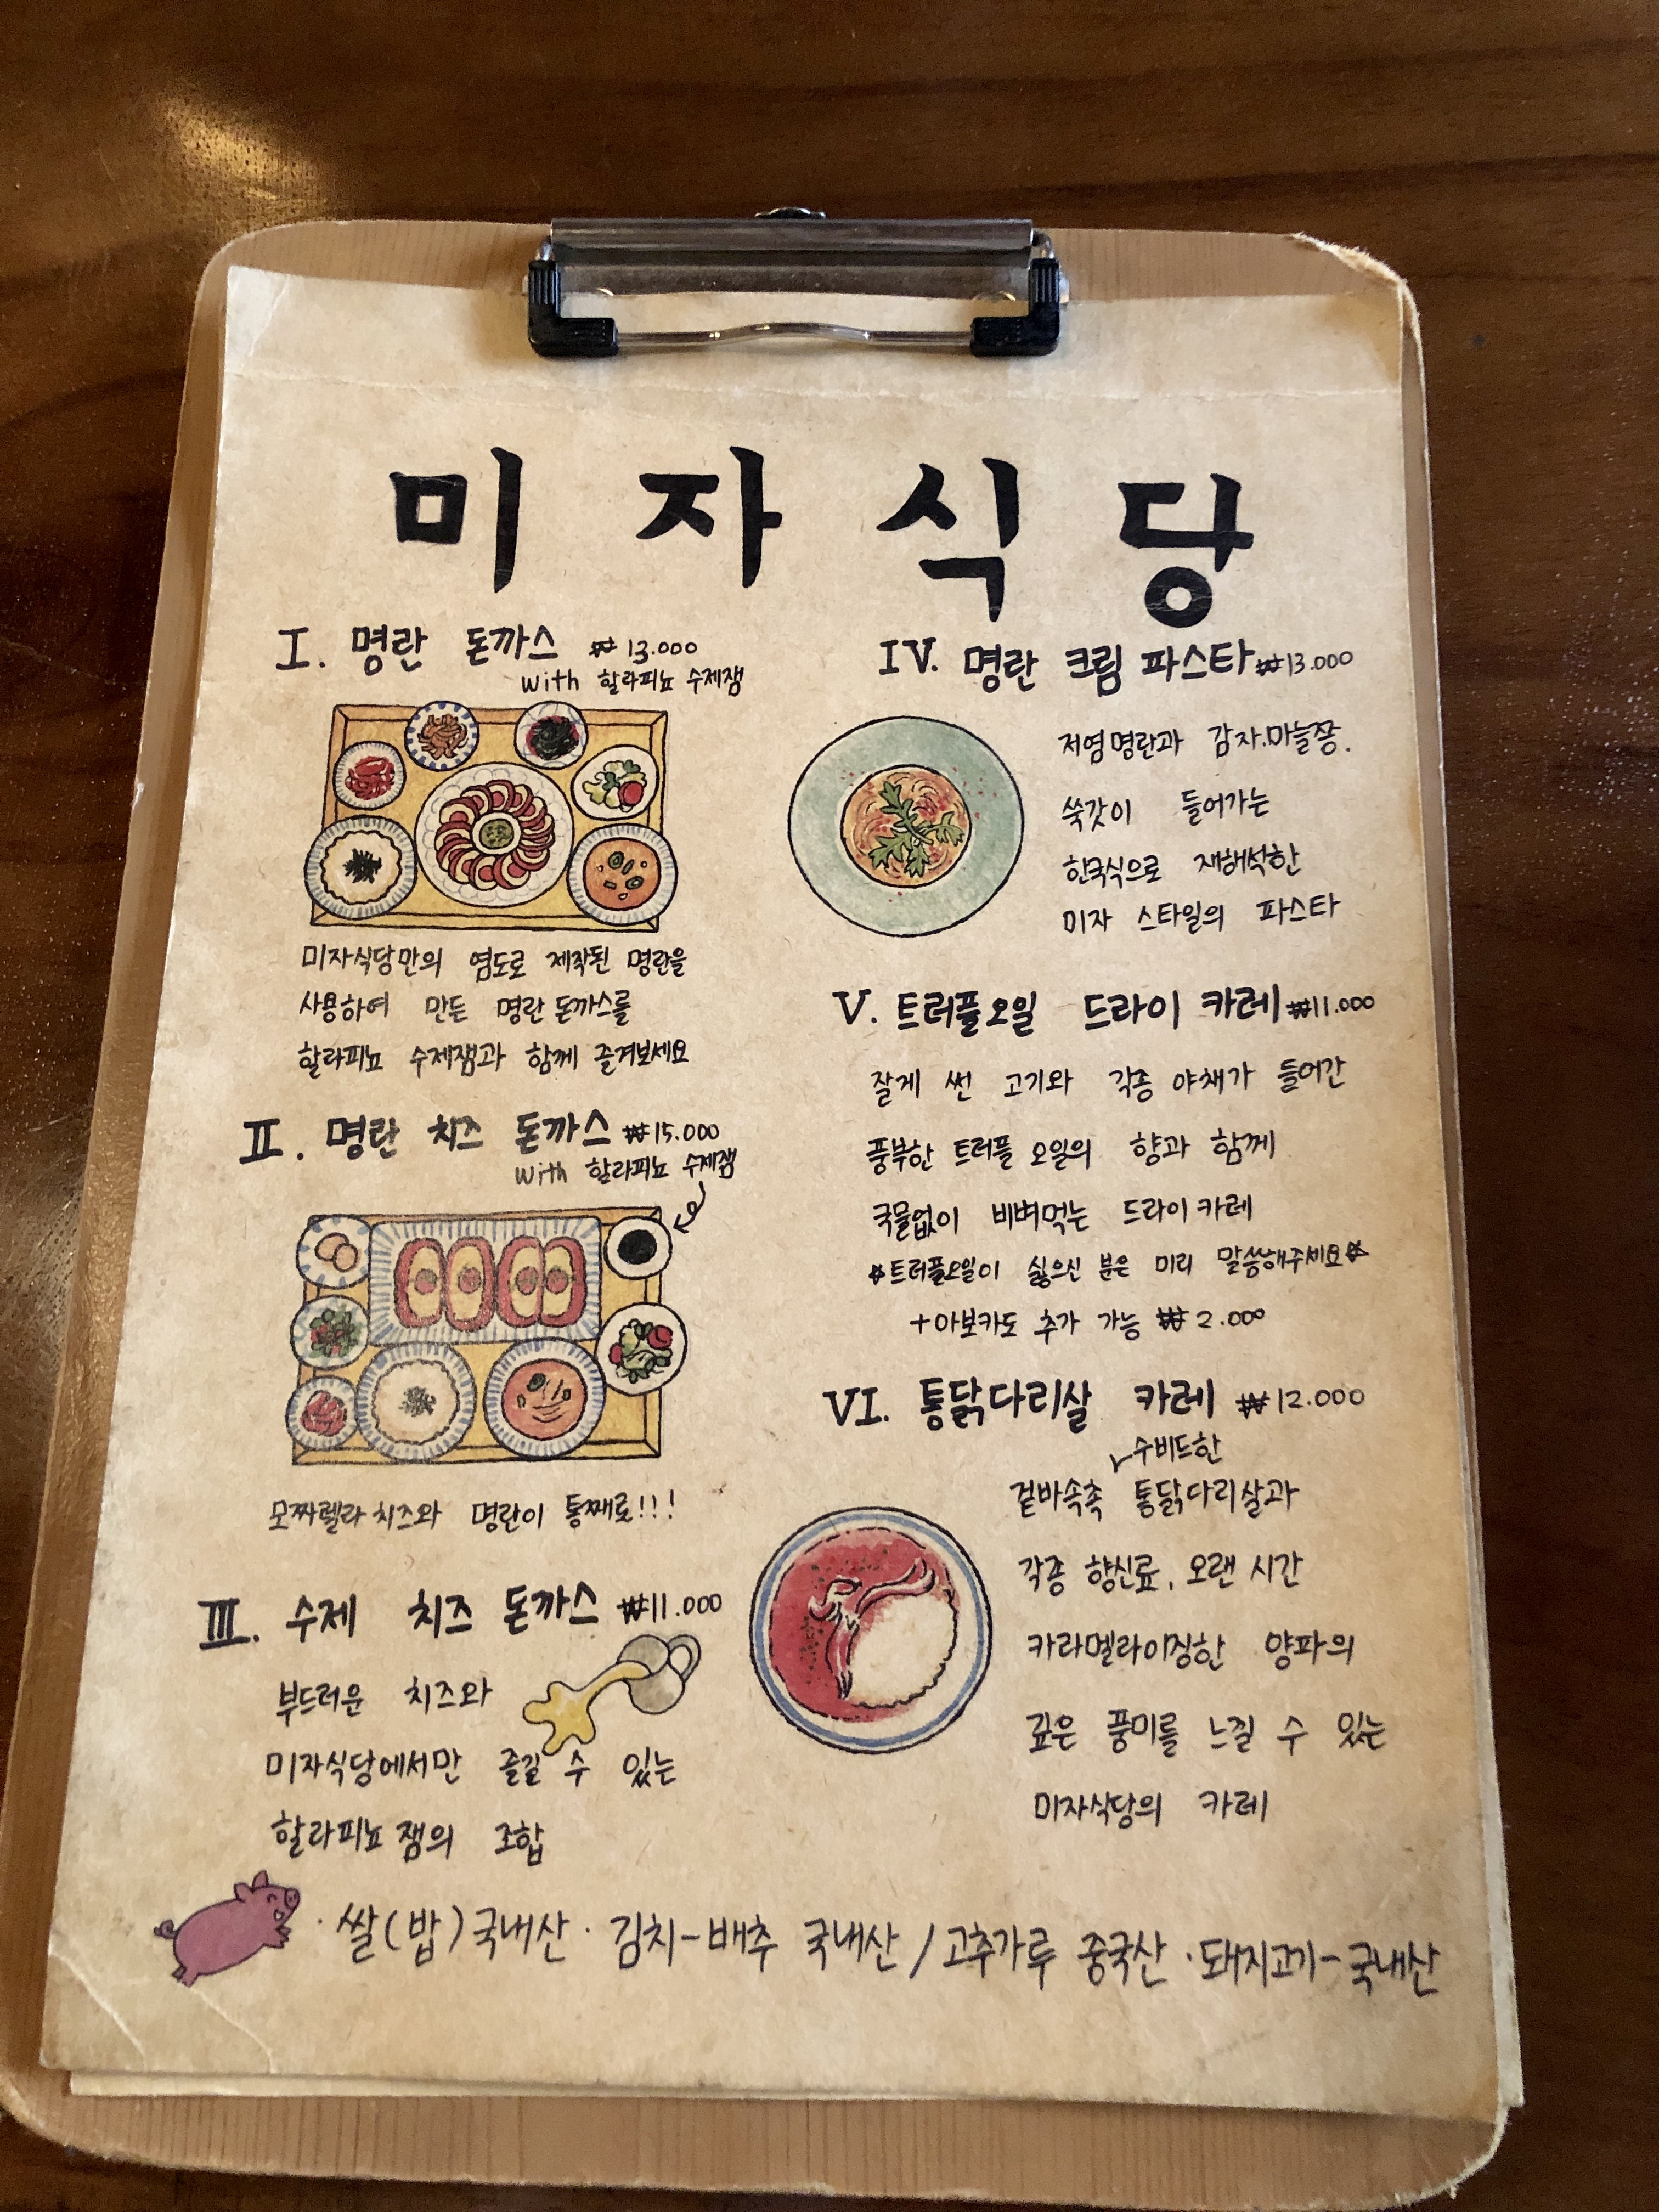 미자식당
I. 명란 돈까스 ₩13.000
with 할라피뇨 수제잼
미자식당만의 염도로 제작된 명란을
사용하여 만든 명란 돈까스를
할라피뇨 수제잼과 함께 즐겨보세요
II. 명란 치즈 돈까스 ₩15.000
with 할라피뇨 수제잼
모짜렐라 치즈와 명란이 통째로!!!
III. 수제 치즈 돈까스 ₩11.000
부드러운 치즈와
미자식당에서만 즐길 수 있는
할라피뇨 잼의 조합
IV. 명란 크림 파스타 ₩13.000
저염명란과 감자.마늘쫑.
쑥갓이 들어가는
한국식으로 재해석한
미자 스타일의 파스타
V. 트러플오일 드라이 카레 ₩11.000
잘게 썬 고기와 각종 야채가 들어간
풍부한 트러플 오일의 향과 함께
국물없이 비벼먹는 드라이 카레
☆트러플오일이 싫으신 분은 미리 말씀해주세요☆
+아보카도 추가 가능 ₩2.000
VI. 통닭다리살 카레 ₩12.000
수비드한
겉바속촉 통닭다리살과
각종 향신료, 오랜 시간
카라멜라이징한 양파의
깊은 풍미를 느낄 수 있는
미자식당의 카레
·쌀(밥)국내산·김치-배추 국내산/고추가루 중국산·돼지고기-국내산